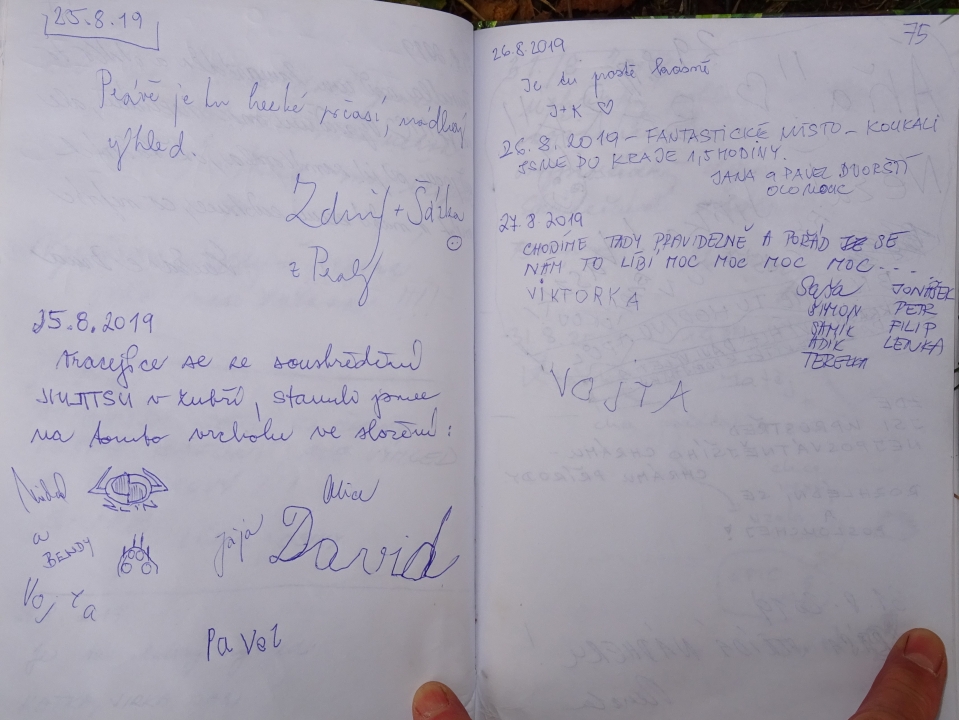 25.8.19
Právě je tu hezké počasí, nádherný
výhled.
Zdeněk + Šárka
z Prahy
25.8.2019
se ze soustředění
JIUJITSU v Zubří, stanuli jsme
na tomto vrcholu ve složení:
Michal
ZLÍN
Alice
a
BENDY
jája
David
Vojta
Pavel
75
26.8.2019
Je tu prostě krásně
J+K ♡
26.8.2019 – FANTASTICKÉ MÍSTO – KOUKALI
JSME DO KRAJE 1,5 HODINY.
JANA a PAVEL DVORŠTÍ
OLOMOUC
27.8 2019
CHODÍME TADY PRAVIDELNĚ A POŘÁD SE
NÁM TO LÍBÍ MOC MOC MOC MOC.....
VIKTORKA
Saša JONÁŠEK
ŠIMON PETR
SAMÍK FILIP
ADIK LENKA
TEREZKA
VOJTA